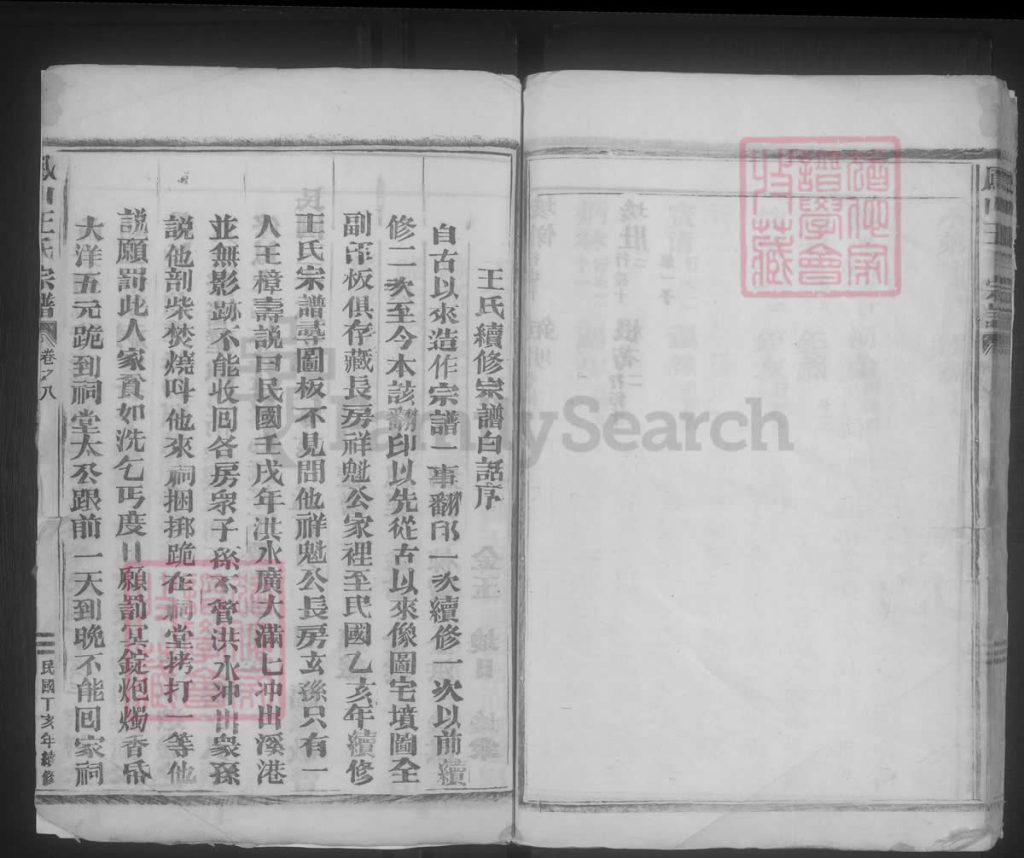 王氏續修宗譜白話序
自古以來造作宗譜一事翻印一次續修一次以前續
修二次至今本該翻印以先從古以來像圖宅墳圖全
副部板俱存藏長房祥魁公家裡至民國乙亥年續修
王氏宗譜尋圖板不見問他祥魁公長房玄孫只有一
人王樟壽說曰民國壬戌年洪水廣大滿七冲出溪港
並無影跡不能收囘各房衆子孫不管洪水冲出衆孫
說他剖柴焚燒呌他來祠捆挷跪在祠堂拷打一等他
說願罰此人家貧如洗乞丐度日願罰冥錠炮燭香帋
大洋五元跪到祠堂太公跟前一天到晚不能囘家祠
鳳山王氏宗譜
卷之八
民國丁亥年續修
譜學會
收藏
FamilySearch